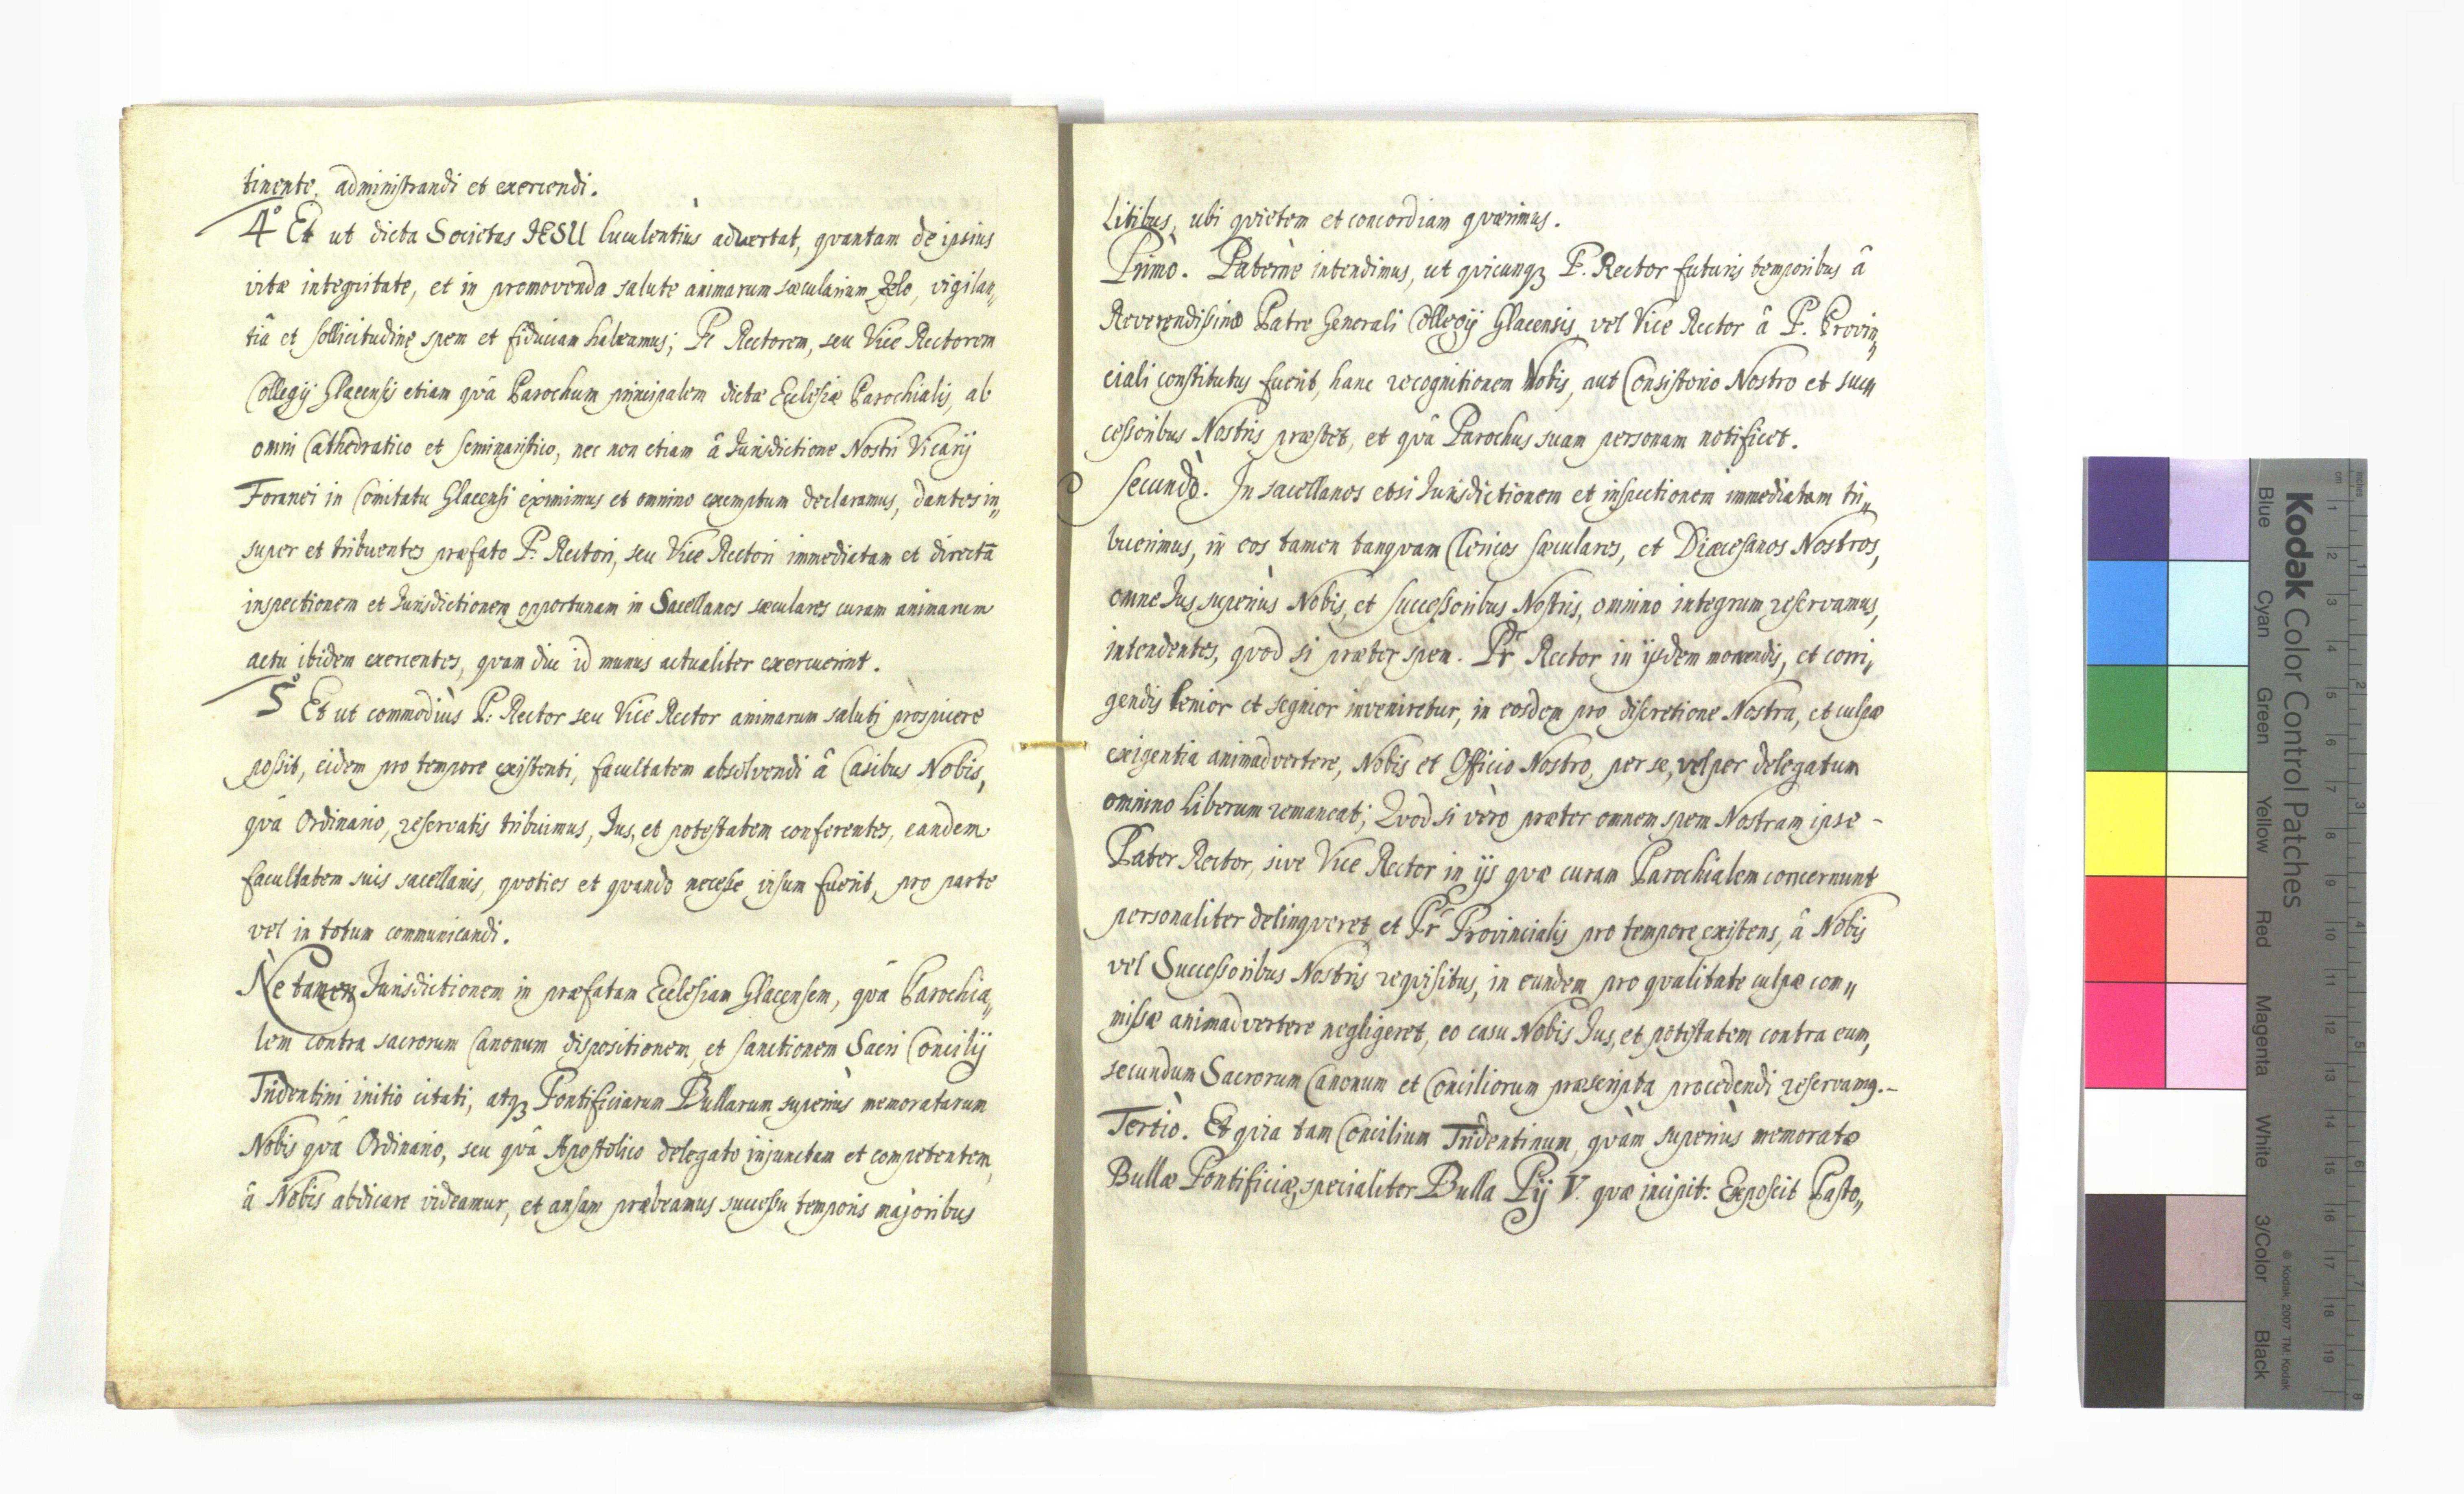 tinente, administrandi et exercendi.
4º Et ut dicta Societas JESU luculentiùs advertat, qvantam de ipsius
vitæ integritate, et in promovenda salute animarum sæcularium Zelo, vigilan„
tiâ et sollicitudine spem et fiduciam habeamus; Pr Rectorem, seu Vice Rectorem
Collegij Glacensis etiam qvâ Parochum principalem dictæ Ecclesiæ Parochialis, ab
omni Cathedratico et Seminaristico, nec non etiam â Jurisdictione Nostri Vicarij
Foranei in Comitatu Glacensi eximimus et omnino exemptum declaramus, dantes in„
super et tribuentes præfato P: Rectori, seu Vice Rectori immediatam et directã
inspectionem et Jurisdictionem opportunam in Sacellanos sæculares curam animarum
actu ibidem exercentes, qvam diu id munus actualiter exercuerint.
5º Et ut commodiùs P: Rector seu Vice Rector animarum saluti prospicere
possit, eidem pro tempore existenti, facultatem absolvendi â Casibus Nobis,
qvâ Ordinario, reservatis tribuimus, Jus, et potestatem conferentes, eandem
facultatem suis sacellanis, qvoties et qvando necesse visum fuerit, pro parte
vel in totum communicandi.
Ne tamen Jurisdictionem in præfatam Ecclesiam Glacensem, qvâ Parochia„
lem contra sacrorum Canonum dispositionem, et sanctionem Sacri Concilij
Tridentini initio citati, atqȝ Pontificiarum Bullarum superiùs memoratarum
Nobis qvâ Ordinario, seu qvâ Apostolico delegato injunctam et competentem,
â Nobis abdicare videamur, et ansam præbeamus successu temporis majoribus
Litibus, ubi qvietem et concordiam qværimus.
Primò. Paternè intendimus, ut qvicunqȝ P. Rector futuris temporibus â
Reverendissimo Patre Generali Collegij Glacensis, vel Vice Rector â P. Provin„
ciali constitutus fuerit, hanc recognitionem Nobis, aut Consistorio Nostro et suc„
cessoribus Nostris præstet, et qvâ Parochus suam personam notificet.
Secundò. In sacellanos etsi Jurisdictionem et inspectionem immediatam tri„
buerimus, in eos tamen tanqvam Clericos sæculares, et Diæcesanos Nostros,
omne Jus superiùs Nobis, et Successoribus Nostris, omnino integrum reservamus,
intendentes, qvod si præter spem Pr Rector in ijsdem monendis, et corri„
gendis lenior et segnior inveniretur, in eosdem pro discretione Nostra, et culpæ
exigentia animadvertere, Nobis et Officio Nostro, per se, vel per delegatum
omnino liberum remaneat; Qvod si verò præter omnem spem Nostram ipse -
Pater Rector, sive Vice Rector in ijs qvæ curam Parochialem concernunt
personaliter delinqveret, et Pr Provincialis pro tempore existens, â Nobis
vel Successoribus Nostris reqvisitus, in eundem pro qvalitate culpæ com„
missæ animadvertere negligeret, eo casu Nobis Jus, et potestatem contra eum,
secundum Sacrorum Canonum et Conciliorum præscripta procedendi reservamq. -
Tertiò. Et qvia tam Concilium Tridentinum, qvàm superiùs memoratæ
Bullæ Pontificiæ, specialiter Bulla Pij V. qvæ incipit: Exposcit Pasto„
Kodak Color Control Patches
Blue Cyan Green Yellow Red Magenta White 3/Color Black
© Kodak, 2007 TM: Kodak
inches 1 2 3 4 5 6 7 8
cm 1 2 3 4 5 6 7 8 9 10 11 12 13 14 15 16 17 18 19